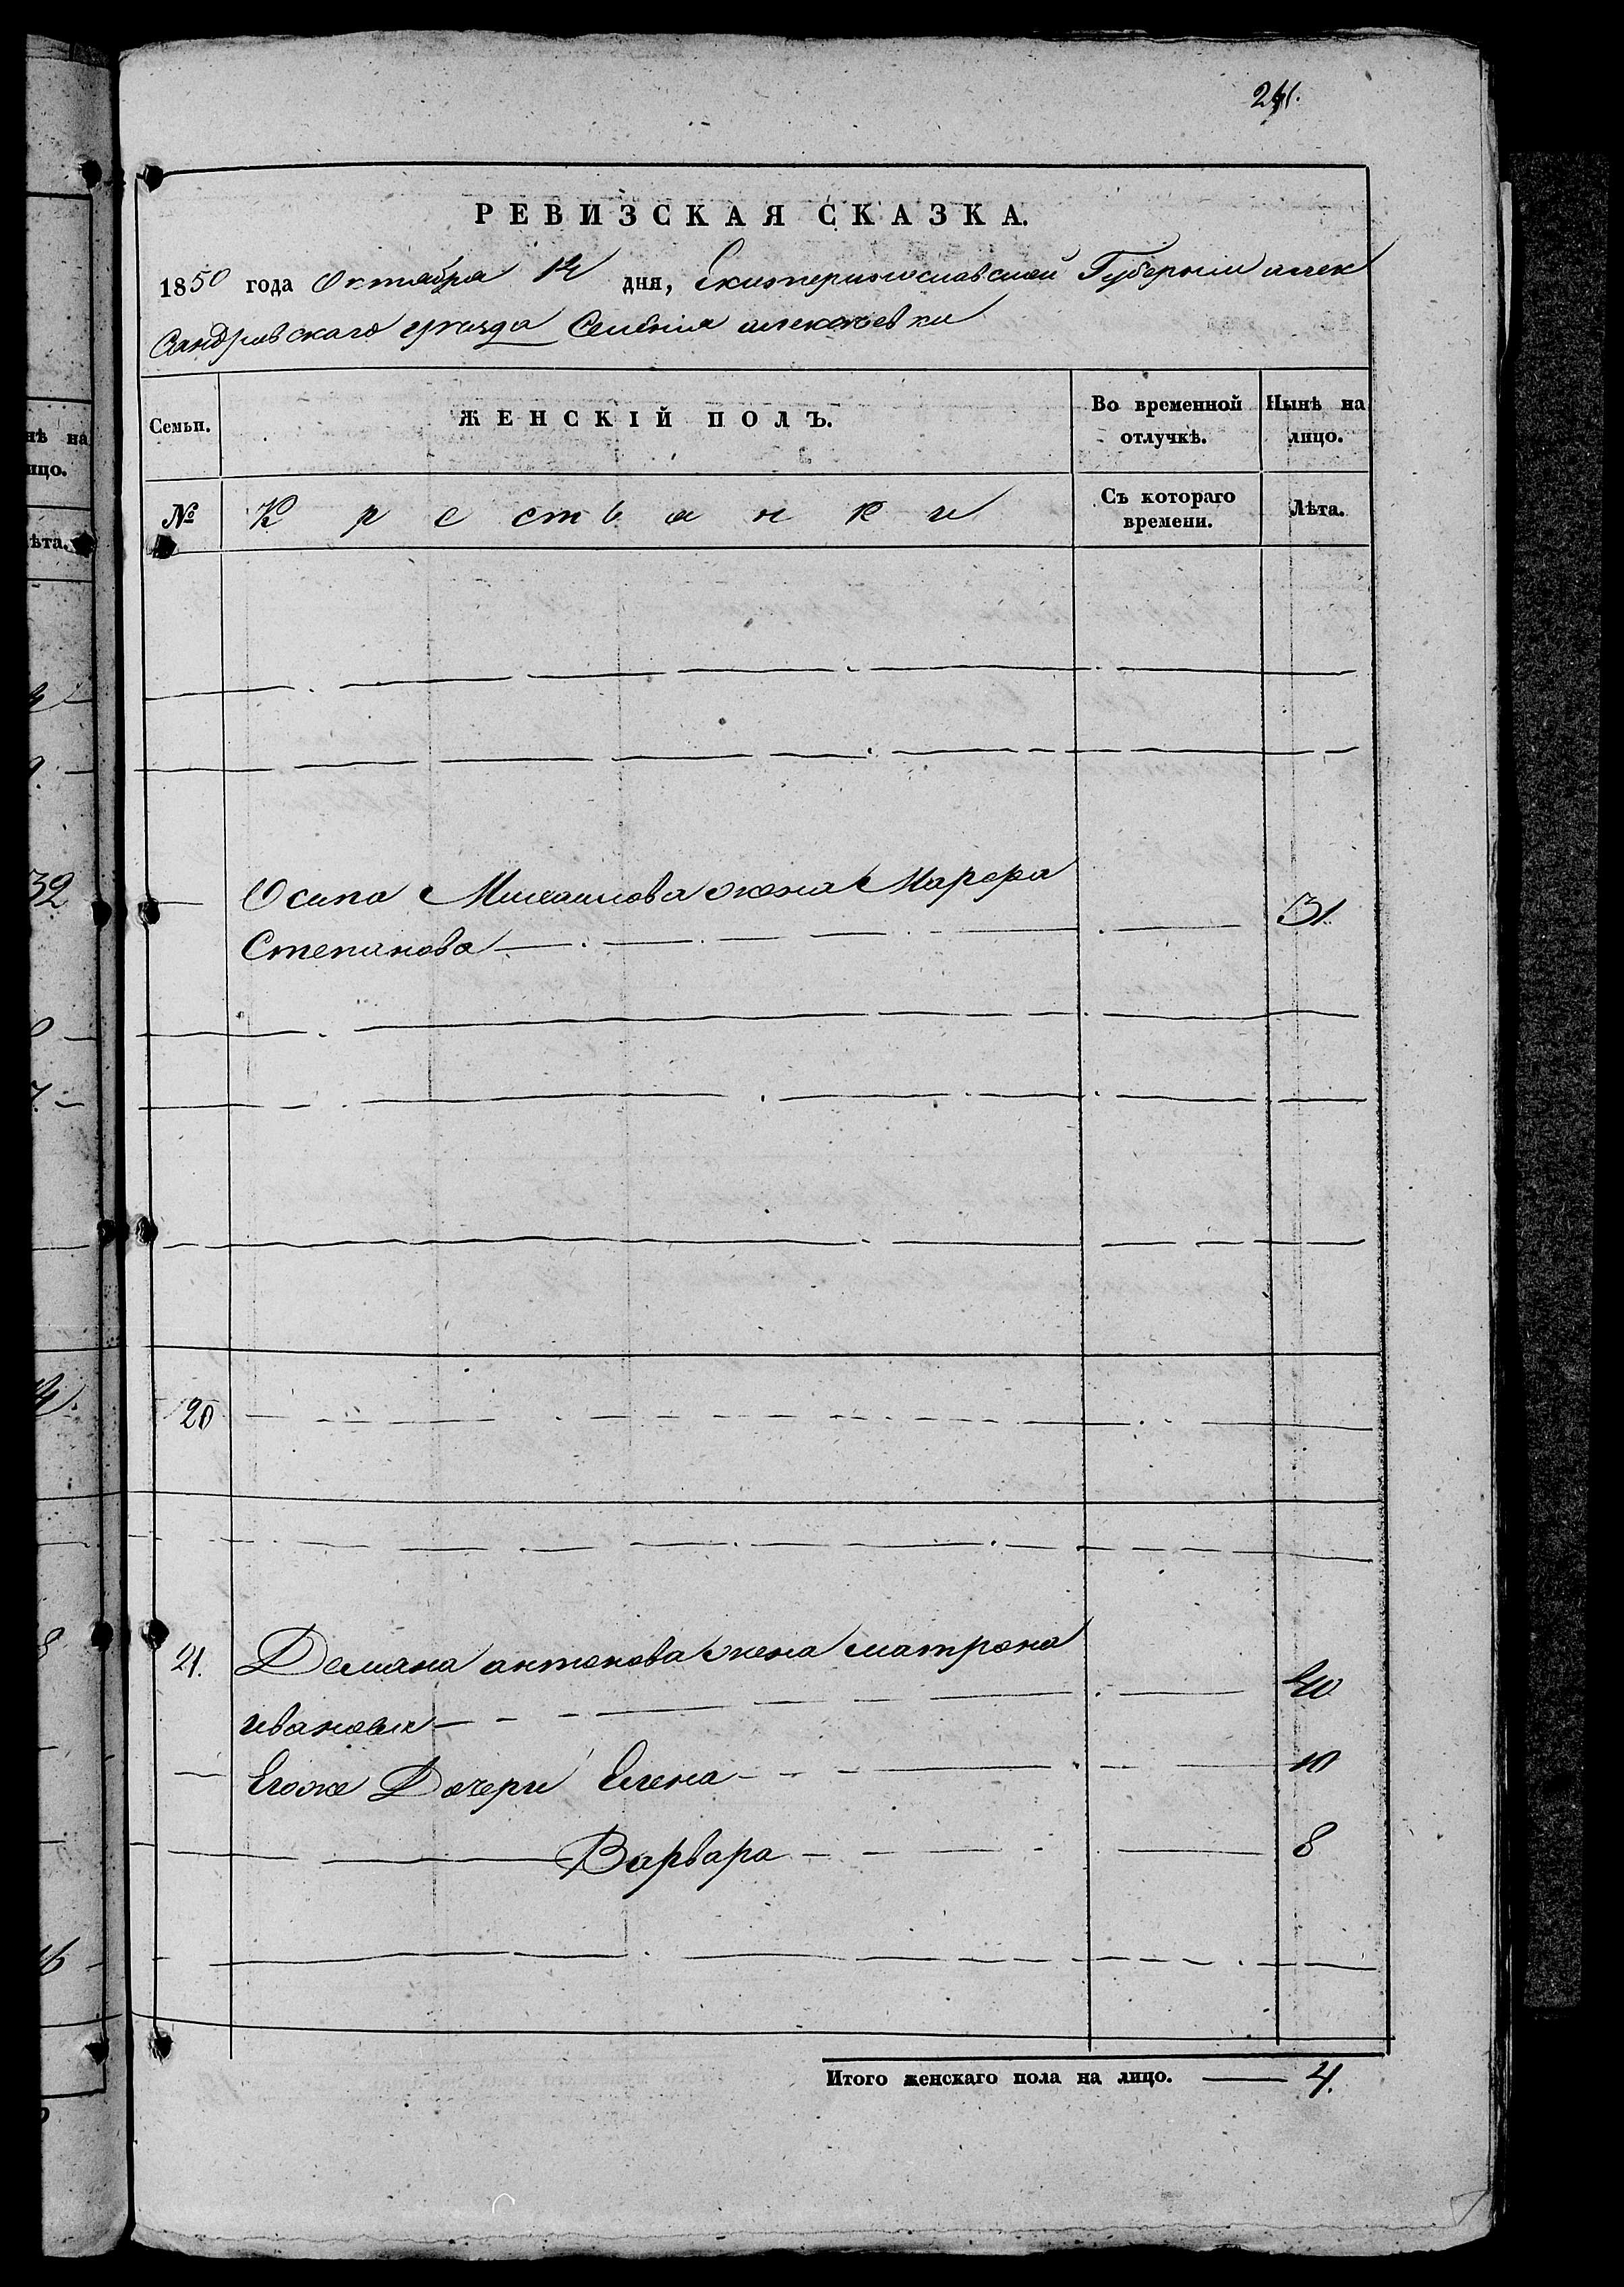 241.
РЕВИЗСКАЯ СКАЗКА.
1850 года Октября 12 дня, Екатеринославской Губернии алек
Сандровскаго уезда Селения алексеевки
Семьи. ЖЕНСКІЙ ПОЛЪ. Во временной отлучкѣ. Нынѣ на лицо.
№ Крестьянки Съ котораго времени. Лѣта.
Осипа Михаилова жена Марфа
Степанова 31.
20
21. Демяна антонова жена матрона
ивановна 40
Егоже Дочери Елена 10
Варвара 8
Итого женскаго пола на лицо. 4.